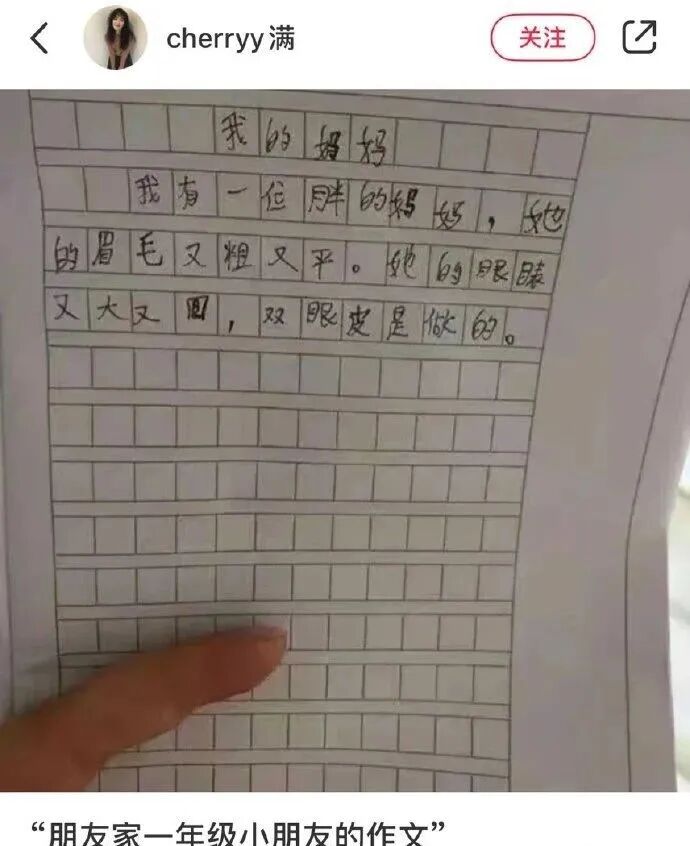 cherryy满
关注
我的妈妈
我有一位胖的妈妈，她
的眉毛又粗又平。她的眼睛
又大又圆，双眼皮是做的。
“朋友家一年级小朋友的作文”